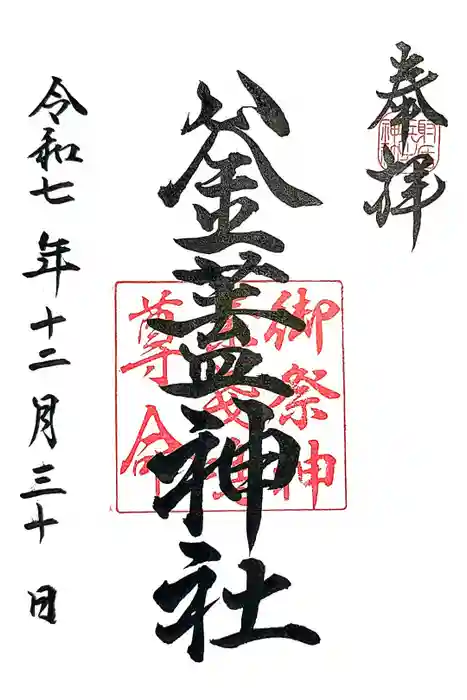 奉拝
釜蓋神社
御祭神
尊命
令和七年十二月三十日